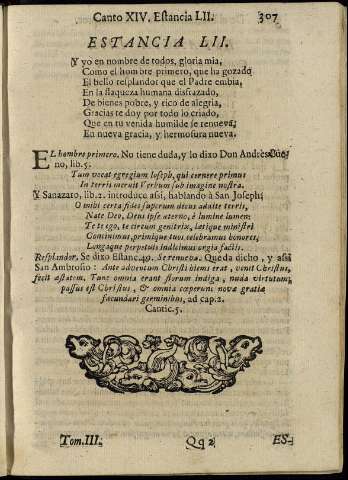 Canto XIV. Estancia LII. 307
ESTANCIA LII.
Y yo en nombre de todos, gloria mia,
Como el hombre primero, que ha gozado
El bello resplandor que el Padre embia,
En la flaqueza humana disfrazado,
De bienes pobre, y rico de alegria,
Gracias te doy por todo lo criado,
Que en tu venida humilde se renueva,
En nueva gracia, y hermosura nueva.
EL hombre primero. No tiene duda, y lo dixo Don Andrès
no, lib. 5.
Tum vocat egregium Ioseph, qui cernere primus
In terris meruit Verbum sub imagine nostra.
Y Sanazaro, lib. 2. introduce assi, hablando à San Joseph:
O mihi certa fides superum decus addite terris,
Nate Deo, Deus ipse æterno, è lumine lumen:
Te te ego, te circum genitrix, latique ministri
Continimus, primique tuos celebramus honores,
Longaque perpetuis indicimus orgia fastis.
Resplandor. Se dixo Estanc. 49. Se renueva. Queda dicho, y assi
San Ambrosio: Ante adventum Christi hiems erat, venit Christus,
fecit æstatem. Tunc omnia erant florum indiga, nuda virtutum,
passus est Christus, & omnia cœperunt novæ gratiæ
fæcundari germinibus, ad cap. 2.
Cantic. 5.
Tom. III. Qq 2 ES-